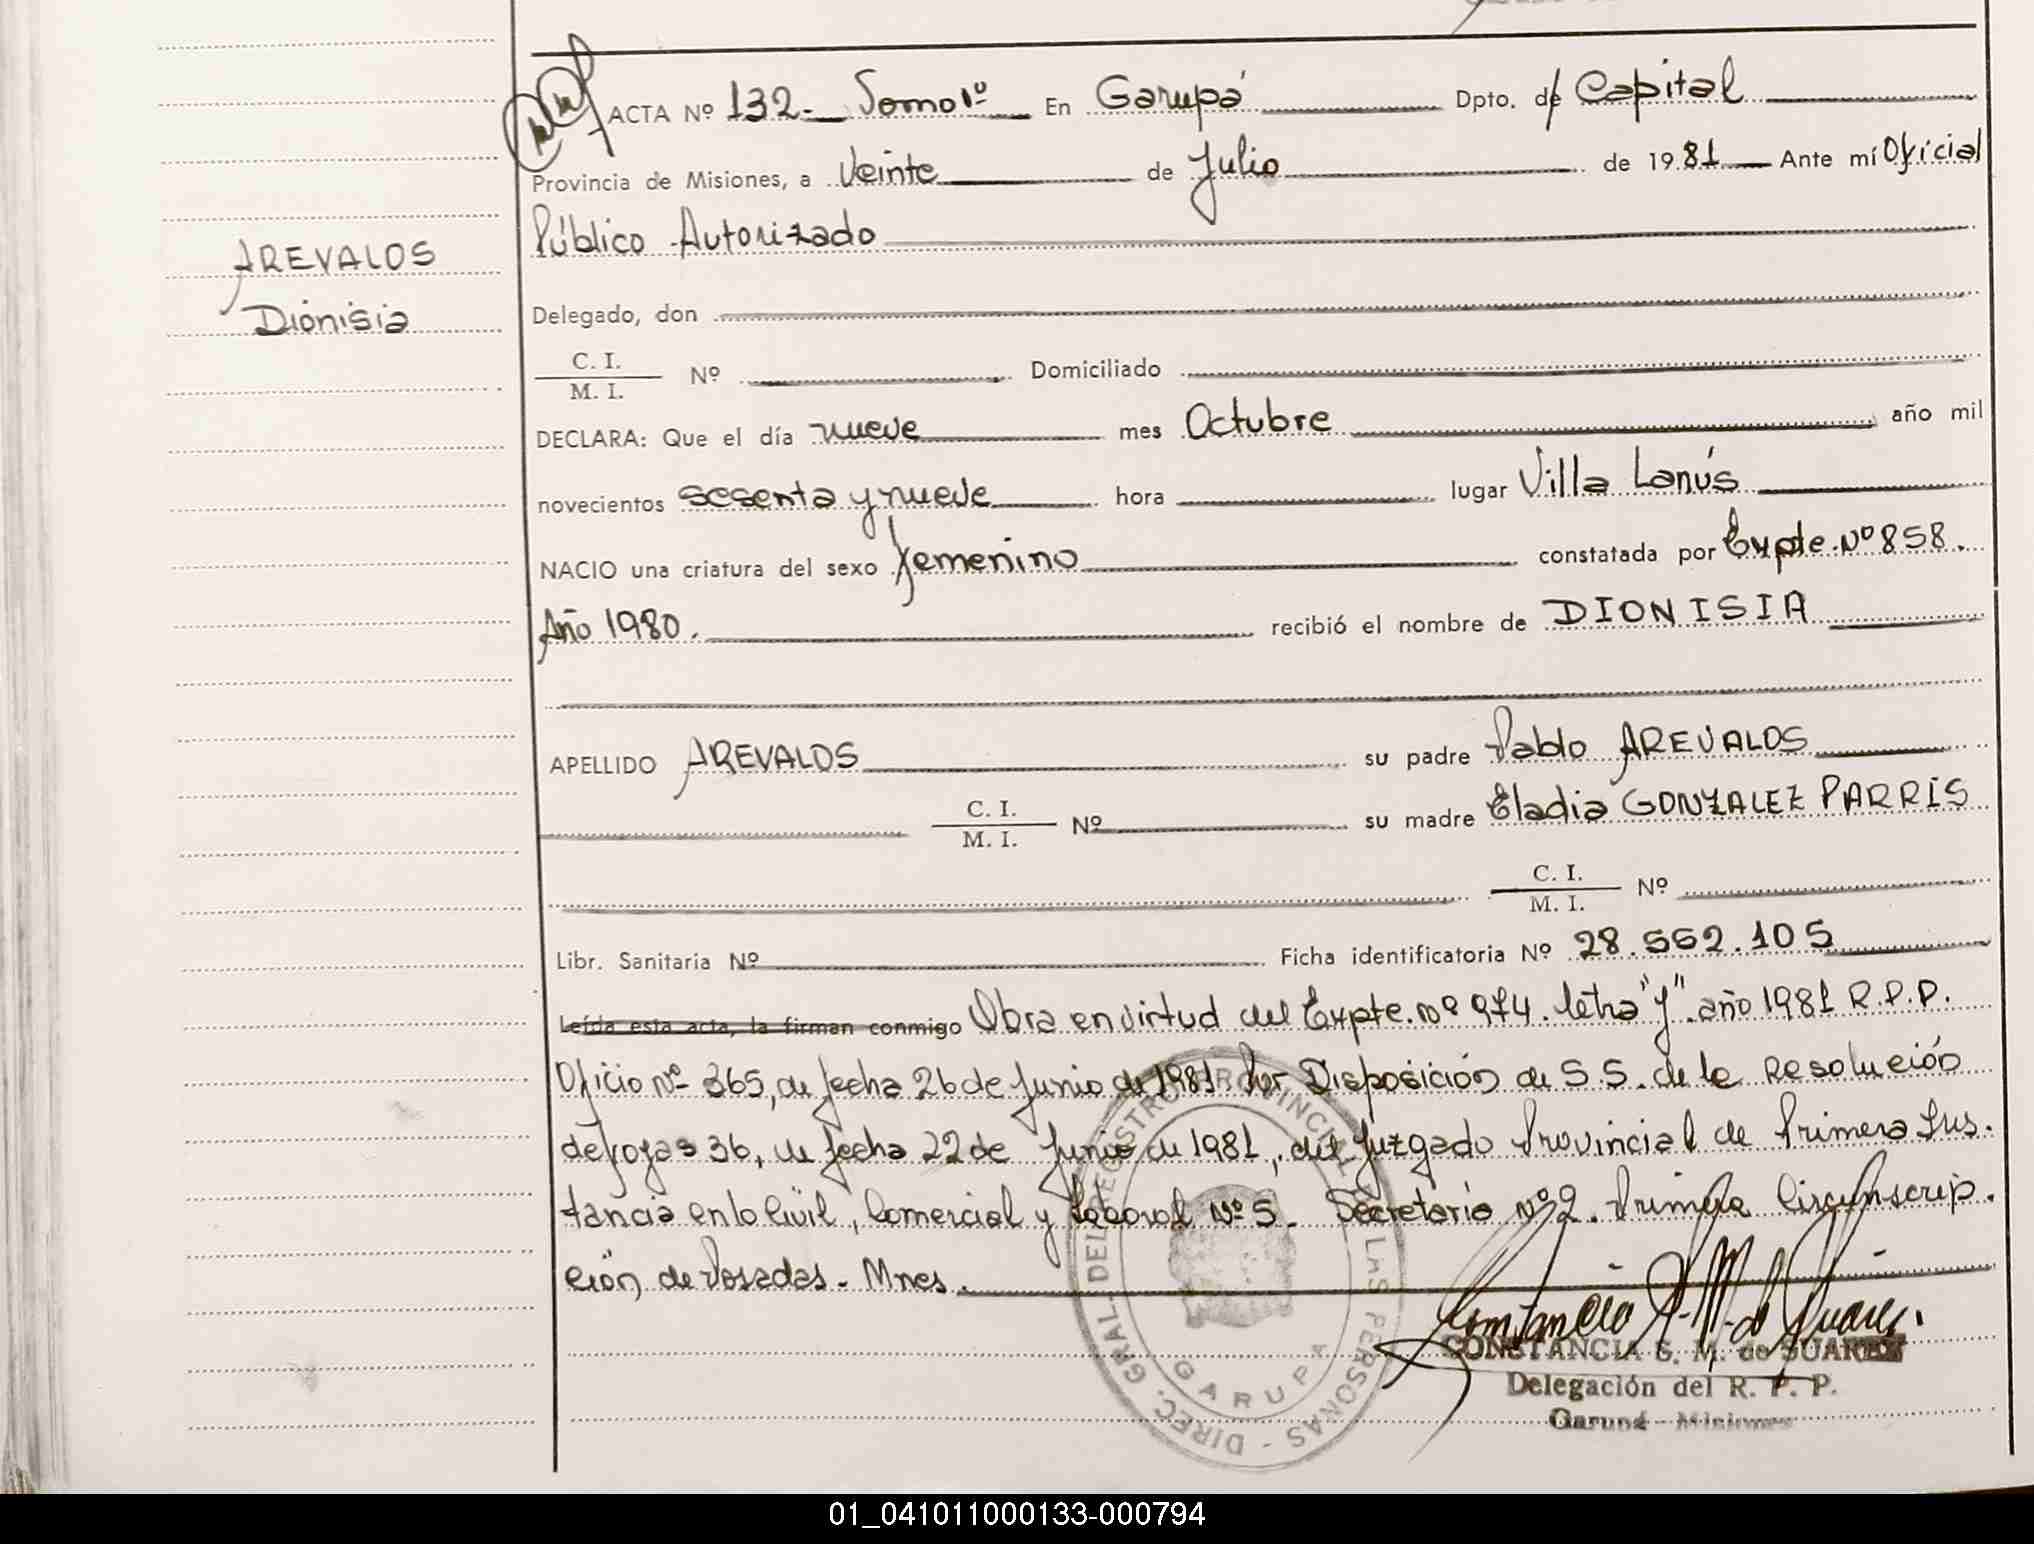 ACTA Nº 132- Tomo 1º En Garupá Dpto. de Capital
Provincia de Misiones, a Veinte de Julio de 1981 Ante mí Oficial
Público Autorizado
AREVALOS
Dionisia
Delegado, don
C. I.
M. I.
Nº Domiciliado
DECLARA: Que el día nueve mes Octubre año mil
novecientos sesenta y nueve hora lugar Villa Lanús
NACIO una criatura del sexo femenino constatada por Expte. Nº 858.
Año 1980. recibió el nombre de DIONISIA
APELLIDO AREVALOS su padre Pablo AREVALOS
C. I.
M. I.
Nº su madre Eladia GONZALEZ PARRIS
C. I.
M. I.
Nº
Libr. Sanitaria Nº Ficha identificatoria Nº 28.552.105
Leída esta acta, la firman conmigo Obra en virtud del Expte. nº 974. letra "Y". año 1981 R.P.P.
Oficio Nº 365, de fecha 26 de Junio de 1981 Por Disposición de S.S. de la Resolución
de fojas 36, de fecha 22 de Junio de 1981, del Juzgado Provincial de Primera Ins.
tancia en lo Civil, Comercial y Laboral Nº 5- Secretario nº 2. Primera Circunscrip.
ción de Posadas- Mnes.
DIREC. GRAL. DEL REGISTRO PROVINCIAL DE LAS PERSONAS -
GARUPA
CONSTANCIA S. M. de SUAREZ
Delegación del R. P. P.
Garupá - Misiones
01_041011000133-000794